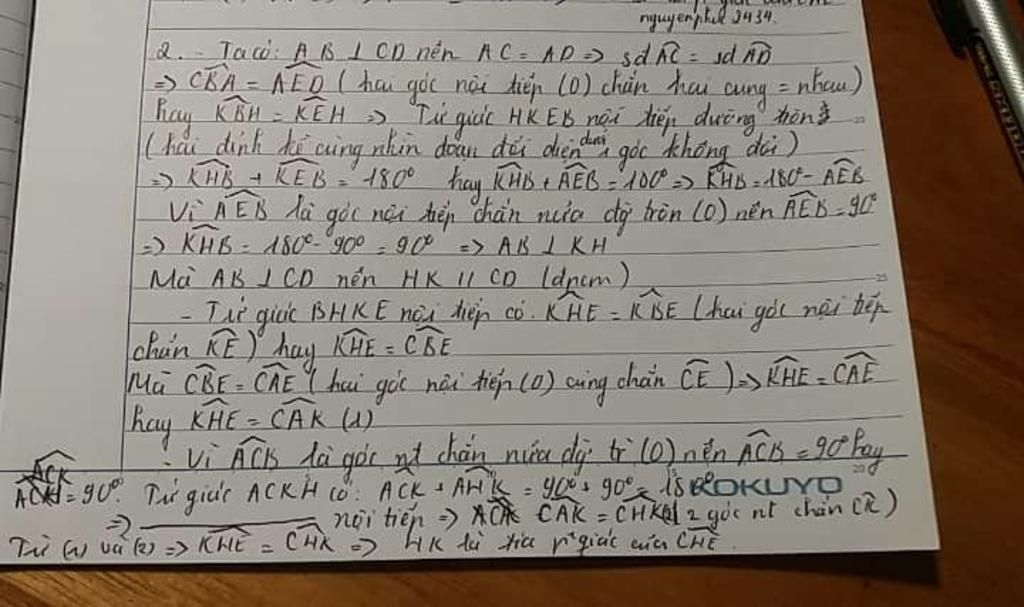 nguyenphu 2434.
2. - Ta có: AB ⊥ CD nên AC = AD => sđ AC = sđ AD
=> CBA = AED (hai góc nội tiếp (O) chắn hai cung = nhau)
hay KBH = KEH => Tứ giác HKEB nội tiếp đường tròn
(hai đỉnh kề cùng nhìn đoạn đối diện dưới 1 góc không đổi)
=> KHB + KEB = 180° hay KHB + AEB = 180° => KHB = 180° - AEB
Vì AEB là góc nội tiếp chắn nửa đg tròn (O) nên AEB = 90°
=> KHB = 180° - 90° = 90° => AB ⊥ KH
Mà AB ⊥ CD nên HK // CD (đpcm)
- Tứ giác BHKE nội tiếp có. KHE = KBE (hai góc nội tiếp
chắn KE) hay KHE = CBE
Mà CBE = CAE (hai góc nội tiếp (O) cùng chắn CE) => KHE = CAE
hay KHE = CAK (1)
- Vì ACB là góc nt chắn nửa đg tr (O) nên ACB = 90° hay
ACK = 90°. Tứ giác ACKH có: ACK + AHK = 90° + 90° = 180°
KOKUYO
=> nội tiếp => CAK = CHK (2 góc nt chắn CK)
Từ (1) và (2) => KHE = CHK => HK là tia p giác của CHE.